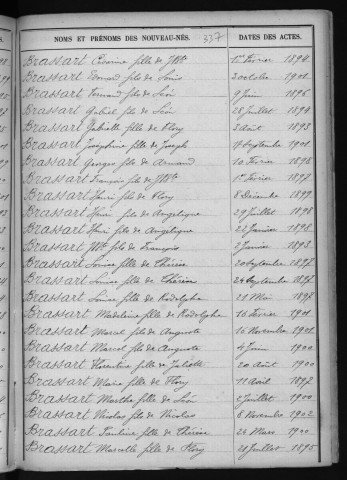 NOMS ET PRÉNOMS DES NOUVEAU-NÉS.
337
DATES DES ACTES.
Brassart fille de J.Bte 1er Février 1894
Brassart Fernand fils de Louis 3 octobre 1901
Brassart Fernand fils de Léon 9 Juin 1896
Brassart Gabriel fils de Léon 28 Juillet 1894
Brassart Gabrielle fille de Flory 3 Août 1893
Brassart Joséphine fille de Joseph 17 Septembre 1901
Brassart Georges fils de Armand 10 Février 1898
Brassart François fils de J.Bte 1er Février 1897
Brassart Henri fils de Flory 8 Décembre 1899
Brassart Henri fils de Angélique 29 Juillet 1898
Brassart Henri fils de Angélique 22 Janvier 1898
Brassart J.Bte fils de François 2 Janvier 1893
Brassart Louise fille de Thérèse 20 Septembre 1897
Brassart Louise fille de Thérèse 24 Septembre 1897
Brassart Louise fille de Rodolphe 21 Mai 1898
Brassart Madeleine fille de Rodolphe 16 Février 1901
Brassart Marcel fils de Auguste 16 Novembre 1901
Brassart Marcel fils de Auguste 4 Juin 1900
Brassart Florentine fille de Juliette 20 Août 1900
Brassart Marie fille de Flory 11 Août 1897
Brassart Marthe fille de Léon 2 Juillet 1900
Brassart Nicolas fils de Nicolas 6 Novembre 1902
Brassart Pauline fille de Thérèse 26 Mars 1900
Brassart Marcelle fille de Flory 21 Juillet 1895